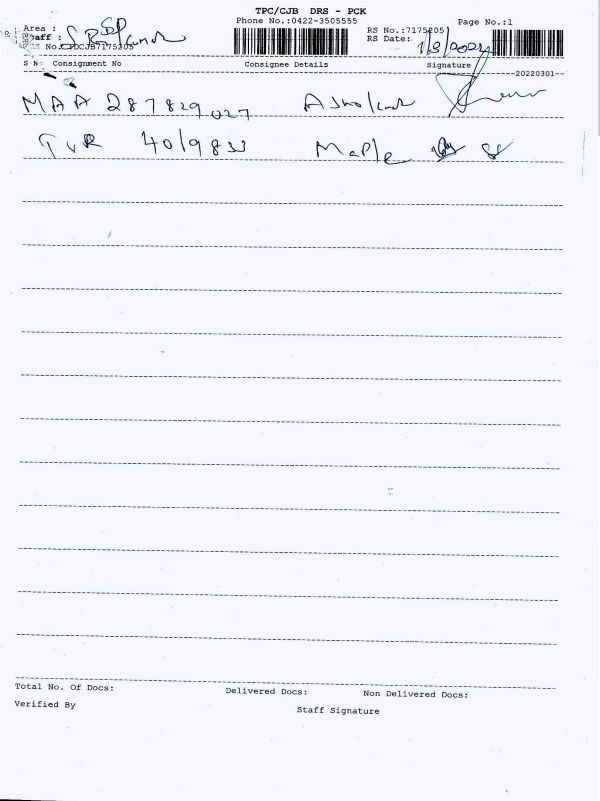 TPC/CJB DRS - PCK
Phone No.:0422-3505555
Page No.:1
Area :
RS No.:7175205
Staff :
RS Date: 1/8/2024
DRS No.CPDCJB7175205
S No Consignment No Consignee Details Signature
--20220301--
MAA 287829027 Ashokumar
TVR 4019833 Maple
Total No. Of Docs: Delivered Docs: Non Delivered Docs:
Verified By Staff Signature